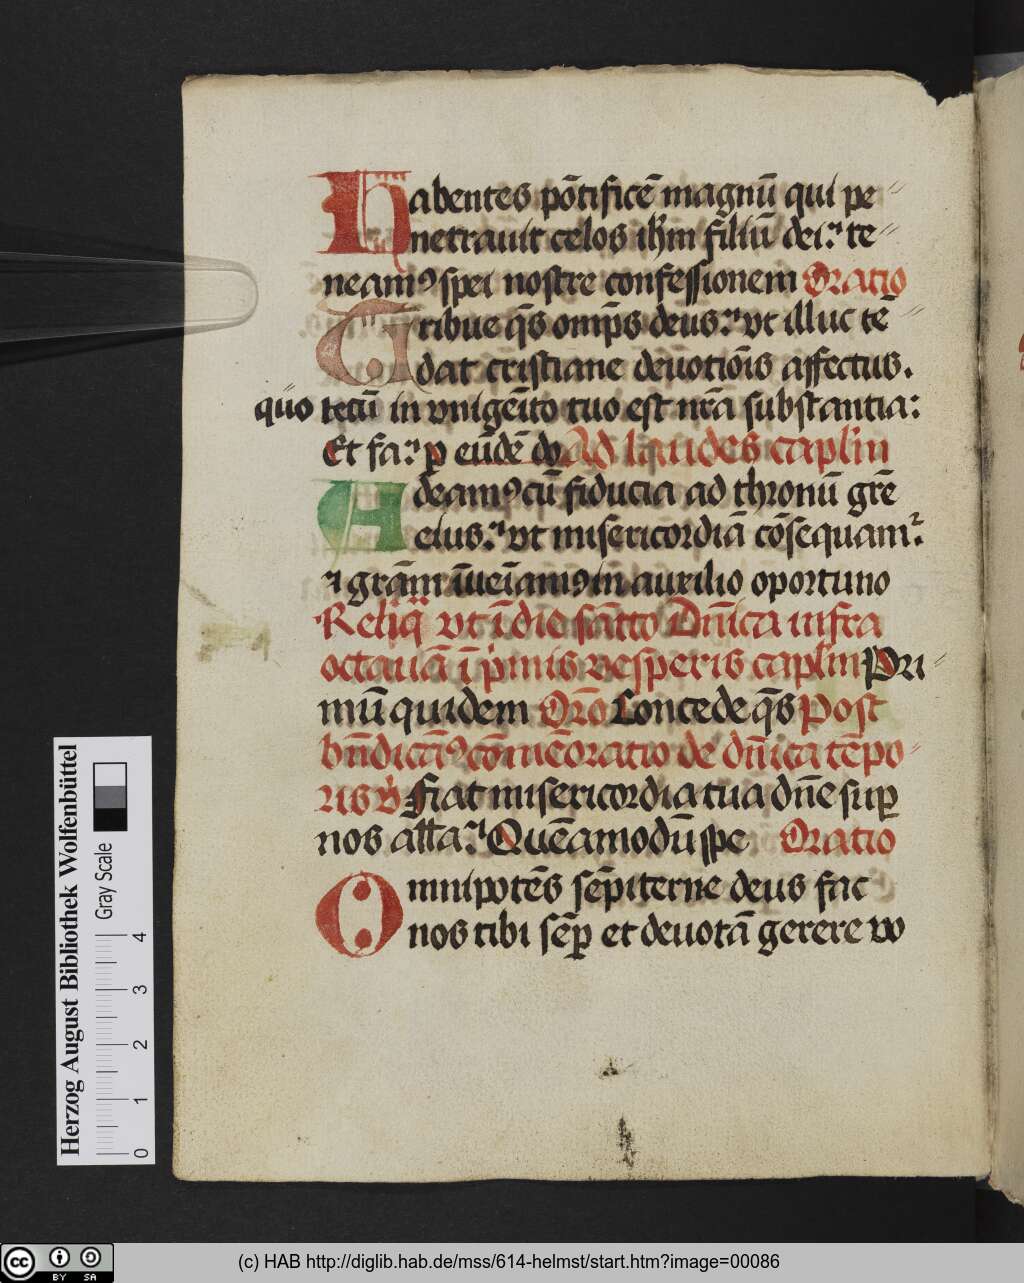 Habentes pōtificē magnū qui pe〃
netrauit celos ih̄m filiū dei: te〃
neamꝰ spei nostre confessionem Oratio
Tribue q̄s omp̄s deus: vt illuc tē〃
dat cristiane deuotiōis affectus.
quo tecū in vnigēito tuo est nr̄a substantia:
Et fa: ꝑ eūdē Ad laudes capl'm
Adeamꝰ cū fiducia ad thronū grē
eius: vt misericordiā cōsequamᷣ
⁊ grām īueīamꝰ in auxilio oportuno
Reliq̄ vt ī die sācto Dn̄ica infra
octauā ī pͥmis vesperis capl'm Pri〃
mū quidem Orō Concede q̄s Post
bn̄dictꝰ cōmēoratio de dn̄ica tēpo〃
ris v̓ Fiat misericordia tua dn̄e suꝑ
nos aƚƚa: Quēamodū spe Oratio
Omnipotēs sēpiterne deus fac
nos tibi sēꝑ et deuotā gerere vo
Herzog August Bibliothek Wolfenbüttel
Gray Scale
0 1 2 3 4
cc BY SA
(c) HAB http://diglib.hab.de/mss/614-helmst/start.htm?image=00086